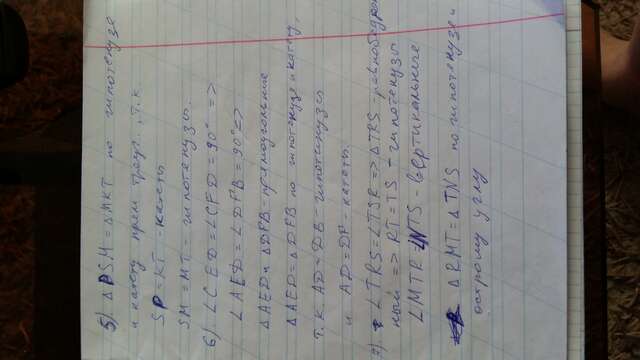 5) △PSM = △MKT по гипотенузе
и катету прям треуг., т.к
SP = KT - катеты
SM = MT - гипотенузы.
6) ∠CED = ∠CFD = 90° =>
∠AED = ∠DFB = 90° =>
△AED и △DFB - прямоугольные
△AED = △DFB по гипотенузе и катету,
т.к AD = DB - гипотенузы
и AD = DP - катеты.
7) ∠TRS = ∠TSR => △TRS - равнобедрен
ный => RT = TS - гипотенузы
∠MTR = ∠NTS - вертикальные
△RMT = △TNS по гипотенузе и
острому углу